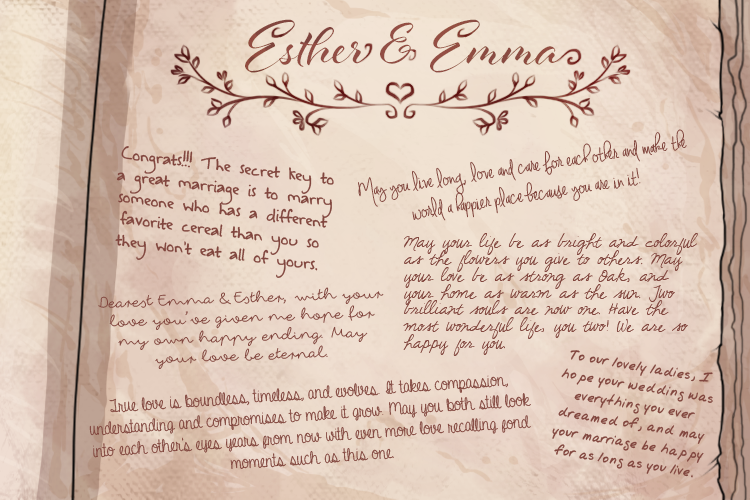 Esther & Emma
Congrats!!! The secret key to
a great marriage is to marry
someone who has a different
favorite cereal than you so
they won't eat all of yours.
May you live long, love and care for each other and make the
world a happier place because you are in it!
May your life be as bright and colorful
as the flowers you give to others. May
your love be as strong as Oak, and
your home as warm as the sun. Two
brilliant souls are now one. Have the
most wonderful life, you two! We are so
happy for you.
Dearest Emma & Esther, with your
love you've given me hope for
my own happy ending. May
your love be eternal.
True love is boundless, timeless, and evolves. It takes compassion,
understanding and compromises to make it grow. May you both still look
into each other's eyes years from now with even more love recalling fond
moments such as this one
To our lovely ladies, I
hope your wedding was
everything you ever
dreamed of, and may
your marriage be happy
for as long as you live.